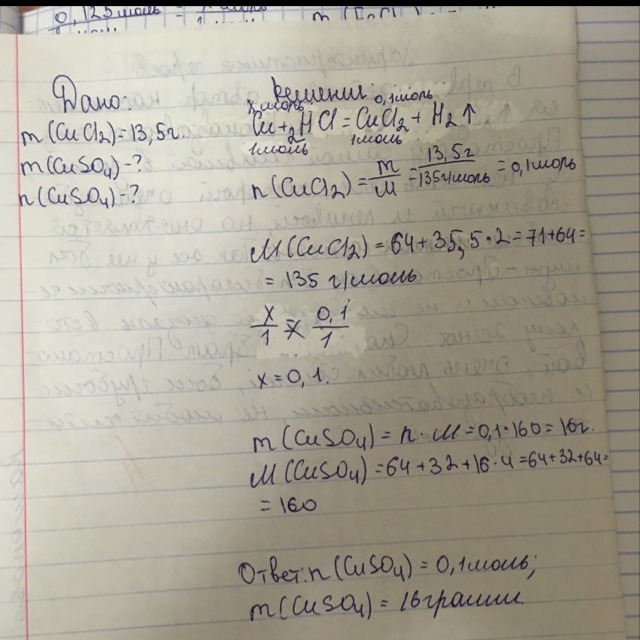 0,125 моль
Дано:
m(CuCl2)=13,5г
m(CuSO4)-?
n(CuSO4)-?
Решение:
x моль 0,1моль
Cu+2HCl=CuCl2+H2↑
1моль 1моль
n(CuCl2)=m/M=13,5г/135г/моль=0,1моль
M(CuCl2)=64+35,5·2=71+64=
=135 г/моль
x/1 = 0,1/1
x=0,1.
m(CuSO4)=n·M=0,1·160=16г.
M(CuSO4)=64+32+16·4=64+32+64=
=160
Ответ: n(CuSO4)=0,1моль;
m(CuSO4)=16грамм.